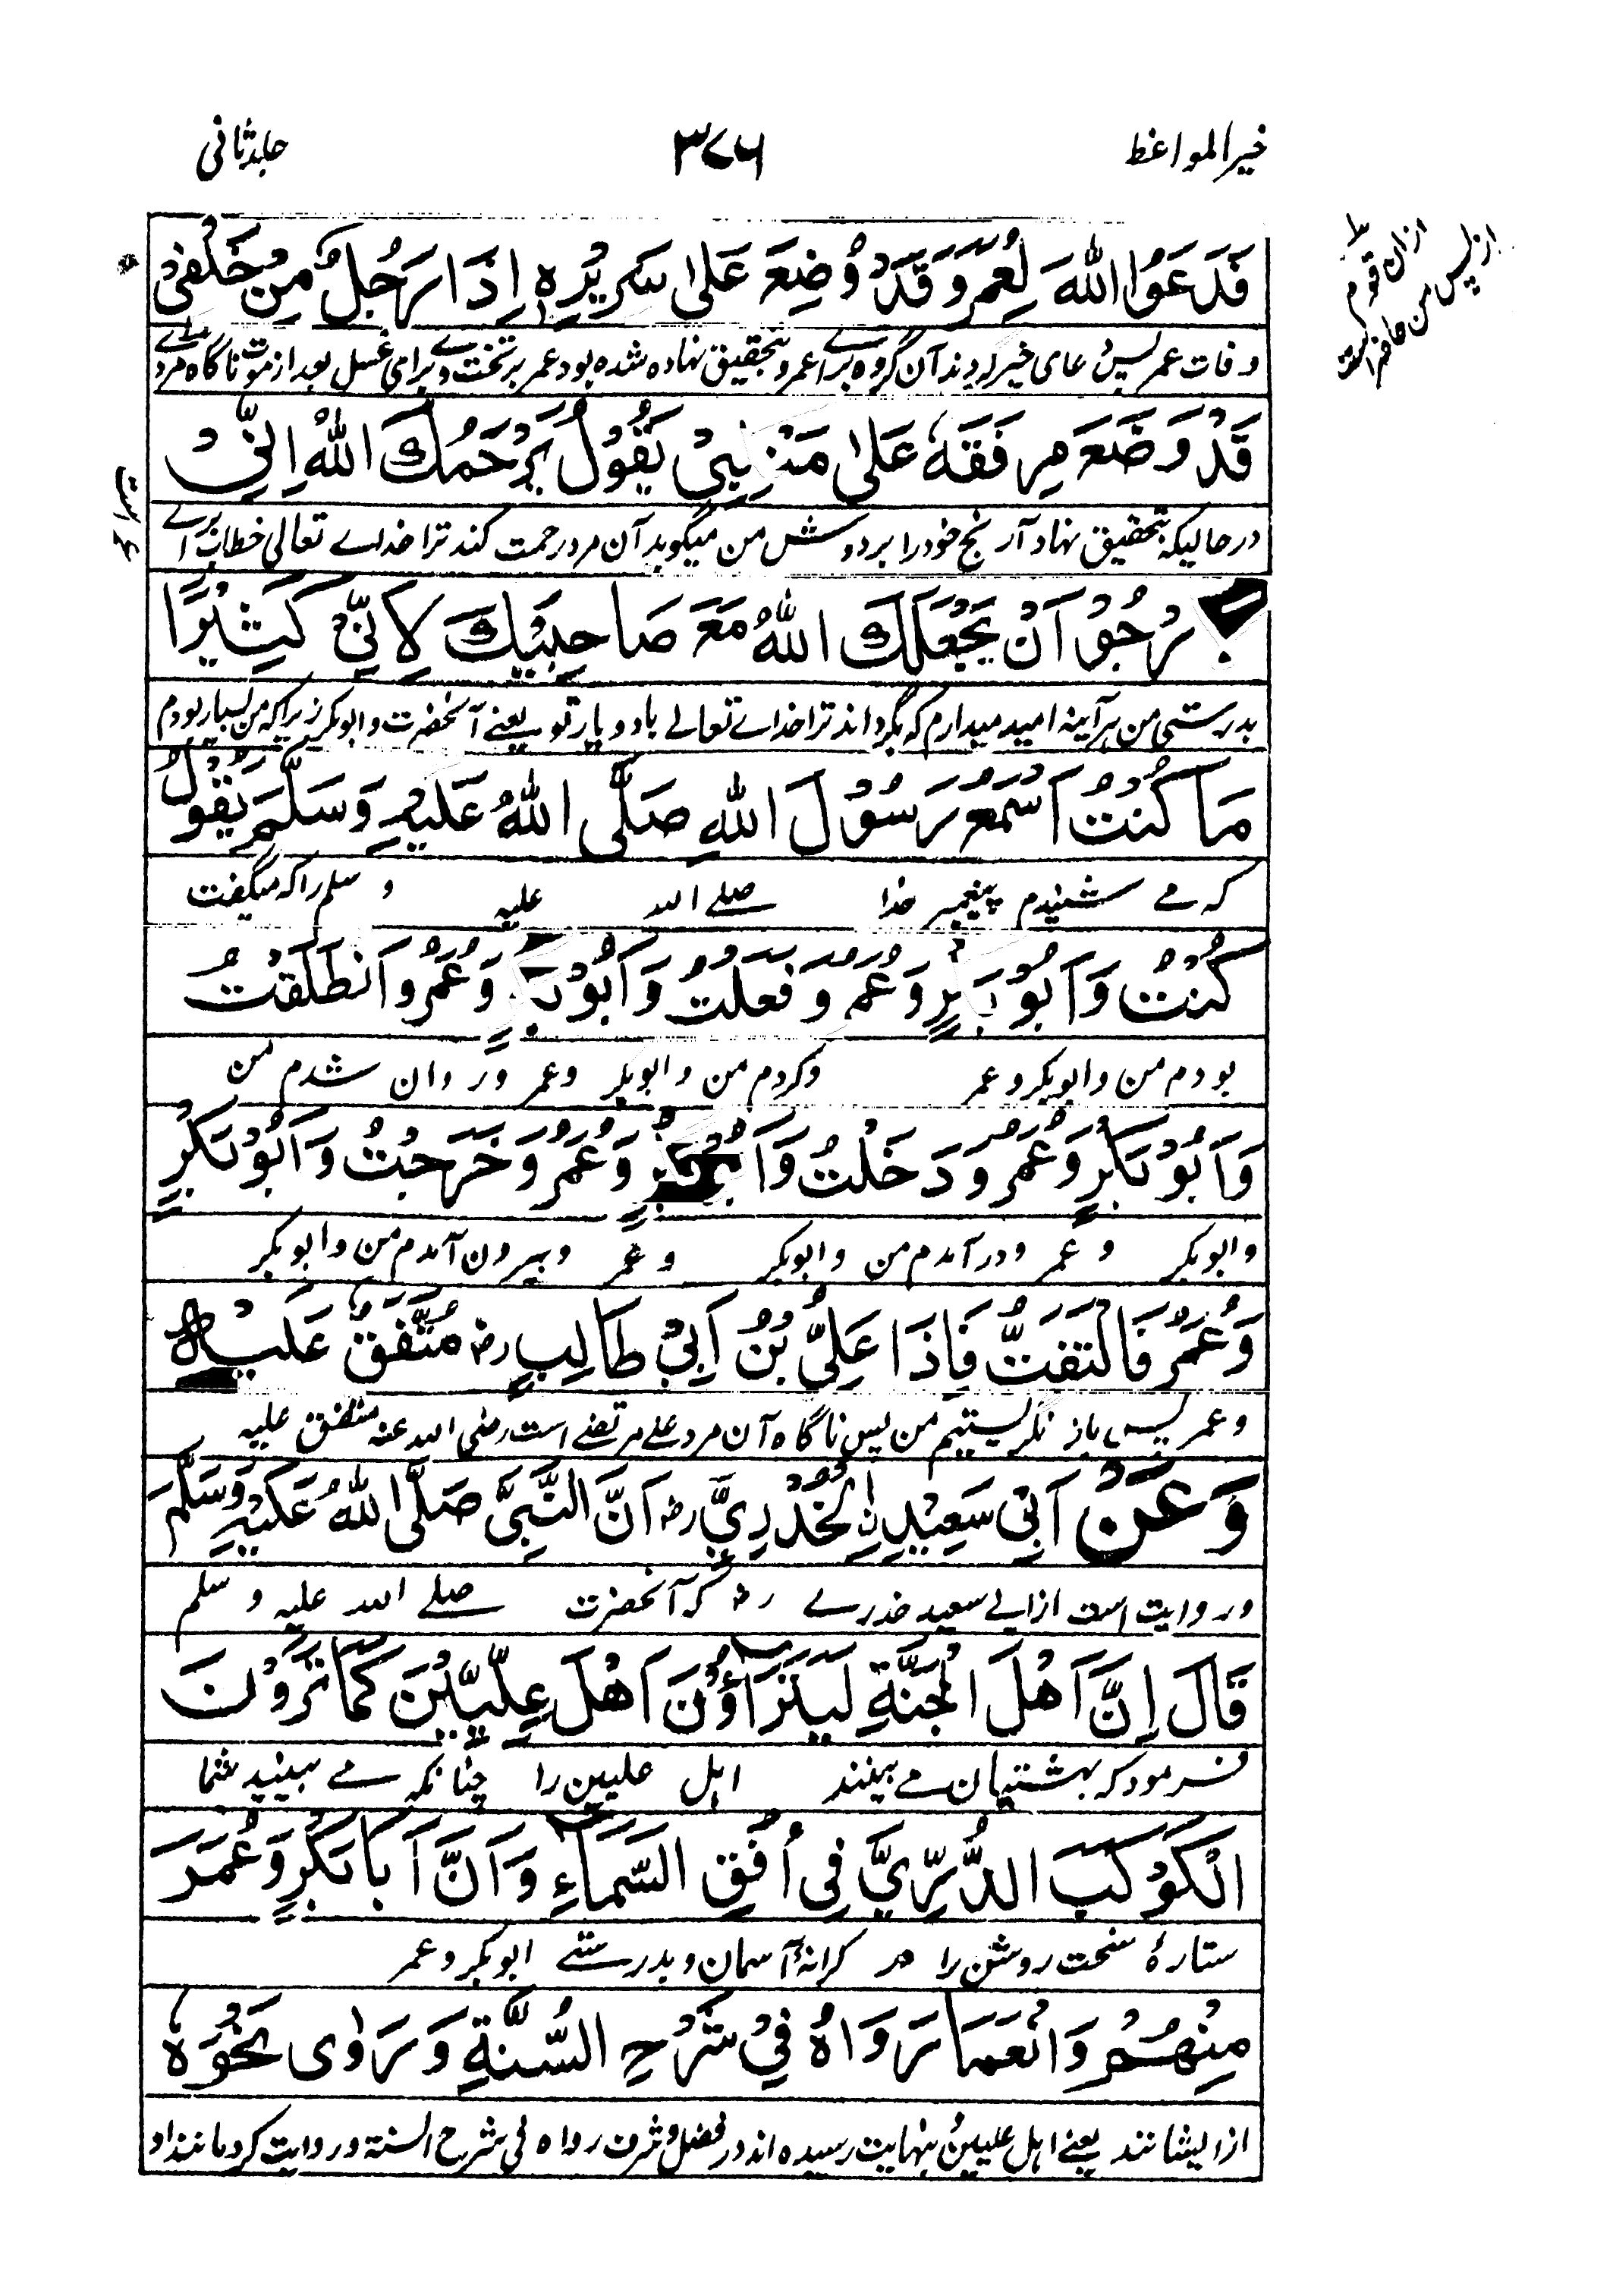 خیر المواعظ
۳۷۶
جلد ثانی
فَدَعَوُا اللّٰهَ لِعُمَرَ وَقَدْ وُضِعَ عَلٰی سَرِیْرِهٖ اِذَا رَجُلٌ مِّنْ خَلْفِیْ
وفات عمر پس دعای خیر کردند آن گروه برای عمر و بتحقیق نهاده شده بود عمر بر تخت وے برای غسل بعد از موت ناگاه مردے
قَدْ وَضَعَ مِرْفَقَهٗ عَلٰی مَنْكِبِیْ یَقُوْلُ یَرْحَمُكَ اللّٰهُ اِنِّیْ
درحالیکه بتحقیق نهاد آرنج خود را بر دوش من میگوید آن مرد رحمت کند ترا خداے تعالی خطاب براے
لَاَرْجُوْ اَنْ یَّجْعَلَكَ اللّٰهُ مَعَ صَاحِبَیْكَ لِاَنِّیْ كَثِیْرًا
بدرستی من هر آینه امید میدارم که بگرداند ترا خداے تعالے با دو یار تو یعنے آنحضرت و ابوبکر زیراکه من بسیار بودم
مَا كُنْتُ اَسْمَعُ رَسُوْلَ اللّٰهِ صَلَّی اللّٰهُ عَلَیْهِ وَسَلَّمَ یَقُوْلُ
که مے شنیدم پیغمبر خدا صلے الله علیه و سلم را که میگفت
كُنْتُ وَاَبُوْ بَكْرٍ وَعُمَرُ وَفَعَلْتُ وَاَبُوْ بَكْرٍ وَعُمَرُ وَانْطَلَقْتُ
بودم من و ابوبکر و عمر وکردم من و ابوبکر وعمر و روان شدم من
وَاَبُوْ بَكْرٍ وَعُمَرُ وَدَخَلْتُ وَاَبُوْ بَكْرٍ وَعُمَرُ وَخَرَجْتُ وَاَبُوْ بَكْرٍ
و ابوبکر و عمر و درآمدم من و ابوبکر و عمر و بیرون آمدم من و ابوبکر
وَعُمَرُ فَالْتَفَتُّ فَاِذَا عَلِیُّ بْنُ اَبِیْ طَالِبٍ رض مُتَّفَقٌ عَلَیْهِ
و عمر پس باز نگریستیم من پس ناگاه آن مرد علے مرتضے است رضی الله عنه متفق علیه
وَعَنْ اَبِیْ سَعِیْدِ نِ الْخُدْرِیِّ رض اَنَّ النَّبِیَّ صَلَّی اللّٰهُ عَلَیْهِ وَسَلَّمَ
و روایت است از ابی سعید خدرے رض که آنحضرت صلے الله علیه و سلم
قَالَ اِنَّ اَهْلَ الْجَنَّةِ لَیَتَرَاؤُنَ اَهْلَ عِلِّیِّیْنَ كَمَا تَرَوْنَ
فرمود که بهشتیان مے بینند اهل علیین را چنانکه مے بینید شما
الْكَوْكَبَ الدُّرِّیَّ فِی اُفُقِ السَّمَاءِ وَاَنَّ اَبَا بَكْرٍ وَعُمَرَ
ستارۂ سخت روشن را در کرانۂ آسمان و بدرستے ابوبکر و عمر
مِنْهُمْ وَاَنْعَمَا رَوَاهُ فِیْ شَرْحِ السُّنَّةِ وَرَوٰی نَحْوَهٗ
از ایشانند یعنے اهل علیین بنهایت رسیده اند در فضل و شرف رواه فی شرح السنة و روایت کرد مانند او
ازان قوم
از پس من حاضر
است